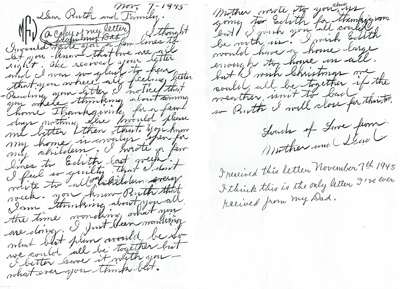 Nov. 7-1945
Dear Ruth and Family:
A copy of my letter
from my Dad.
I thought
I would write you a few lines to
let you know that we are all
right. We received your letter
and I was so glad to hear
that you were all feeling better
Reading your letter I notice that
you were thinking about coming
home Thanksgiving for a few
days nothing else would please
me better than that. You know
my home is always open for
my children. I wrote a few
lines to Edith last week.
I feel so guilty that I don't
write to all children every
week. you know Ruth that
I am thinking about you all
the time wondering what you
are doing. I just been wondering
what best plan would be so
we could all be together but
I better leave it with you
what ever you think best.
Mother wrote that you was
going to Edith for thanksgiving
but I wish you all could
be with us. I wish Edith
would have a home large
enough
but I wish Christmas we
could all be together if the
weather isn't to bad
so Ruth I will close for this time.
Loads of Love from
Mother and Dad
I received this letter November 7th 1945
I think this is the only letter I've ever
received from my Dad.